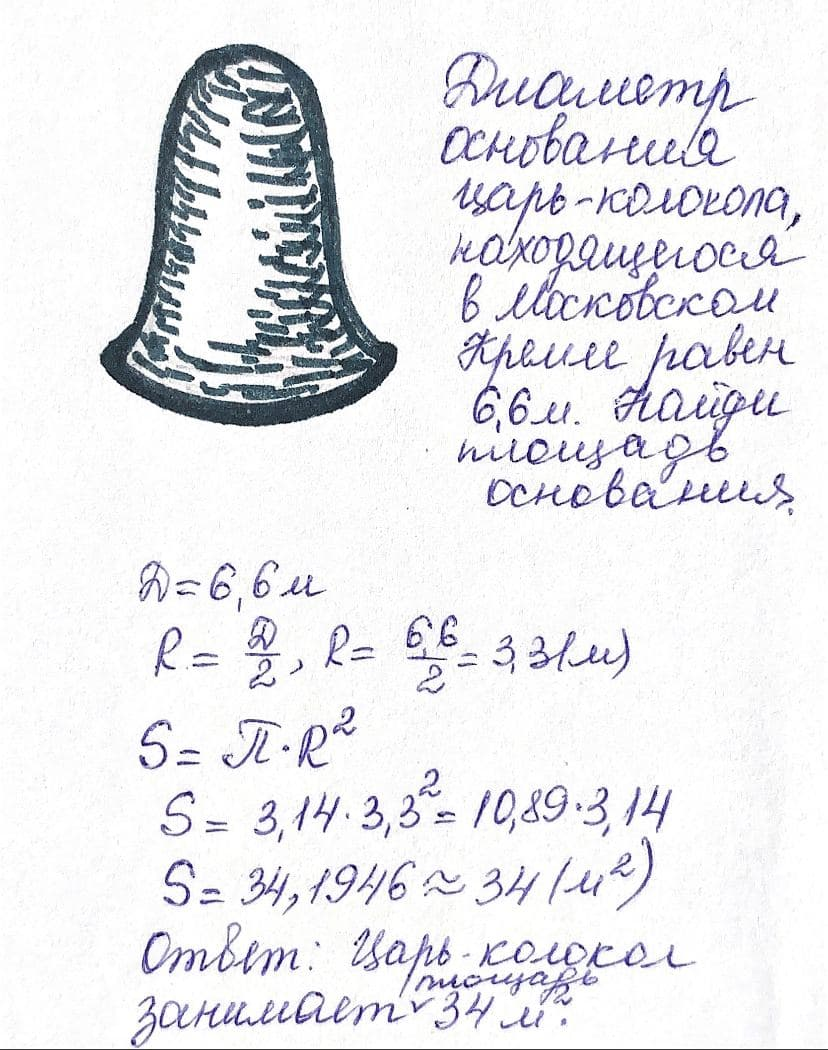 Диаметр
основания
царь-колокола,
находящегося
в Московском
Кремле равен
6,6м. Найди
площадь
основания.
D=6,6м
R = D/2, R = 6,6/2 = 3,3(м)
S = П·R²
S = 3,14·3,3² = 10,89·3,14
S = 34,1946 ≈ 34 (м²)
Ответ: Царь-колокол
площадь
занимает 34 м².